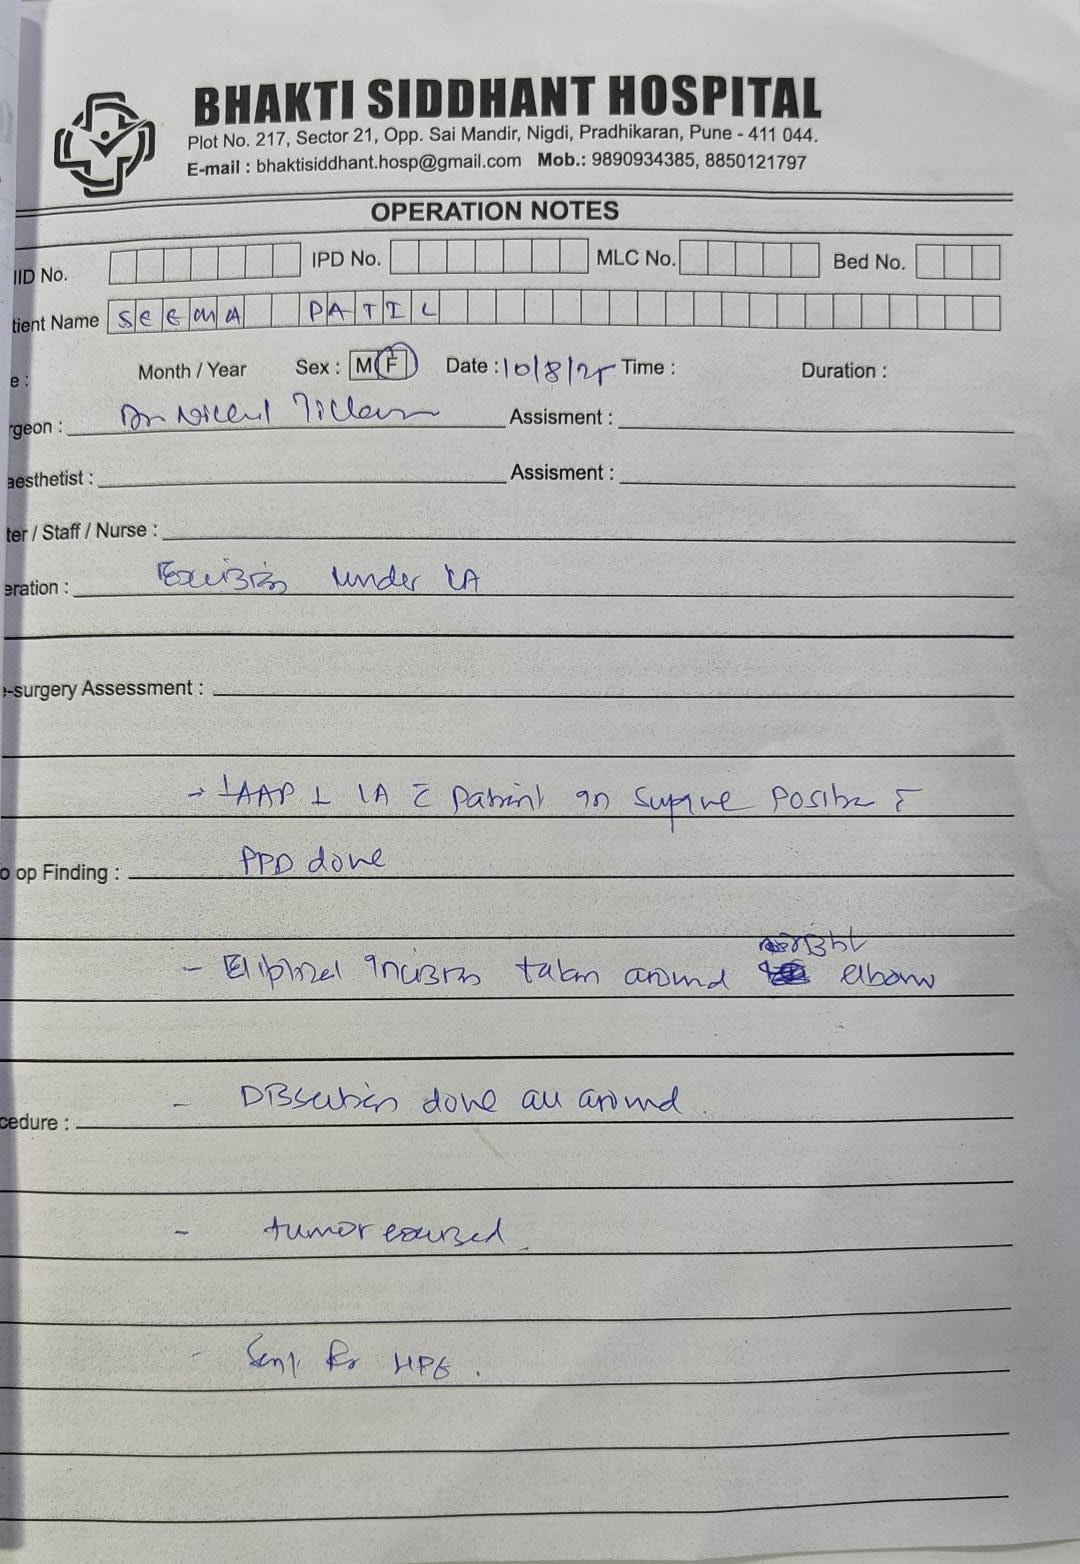 BHAKTI SIDDHANT HOSPITAL
Plot No. 217, Sector 21, Opp. Sai Mandir, Nigdi, Pradhikaran, Pune - 411 044.
E-mail : bhaktisiddhant.hosp@gmail.com Mob.: 9890934385, 8850121797
OPERATION NOTES
IID No. IPD No. MLC No. Bed No.
tient Name SEEMA PATIL
e : Month / Year Sex : M F Date : 10/8/25 Time : Duration :
rgeon : Dr Assisment :
aesthetist : Assisment :
ter / Staff / Nurse :
eration : Excision under LA
e-surgery Assessment :
→ LA c̄ patient in supine position c̄
o op Finding : PPD done
- Elliptical incision taken around right elbow
- Dissection done all around.
cedure :
- tumor excised.
- Sent for HPE.